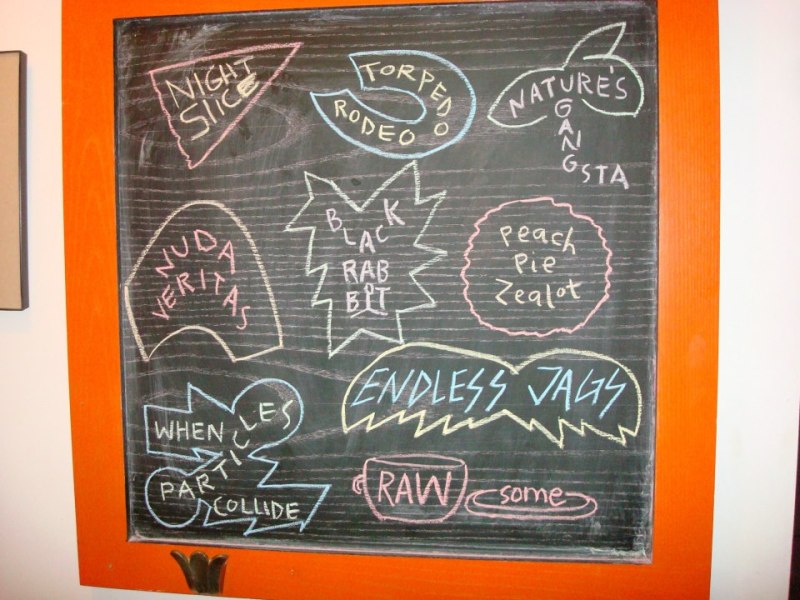 NIGHT
SLICE
TORPEDO
RODEO
NATURE'S
GANGSTA
NUDA
VERITAS
BLACK
RAB
BIT
Peach
Pie
Zealot
ENDLESS JAGS
WHEN
PARTICLES
COLLIDE
RAW some